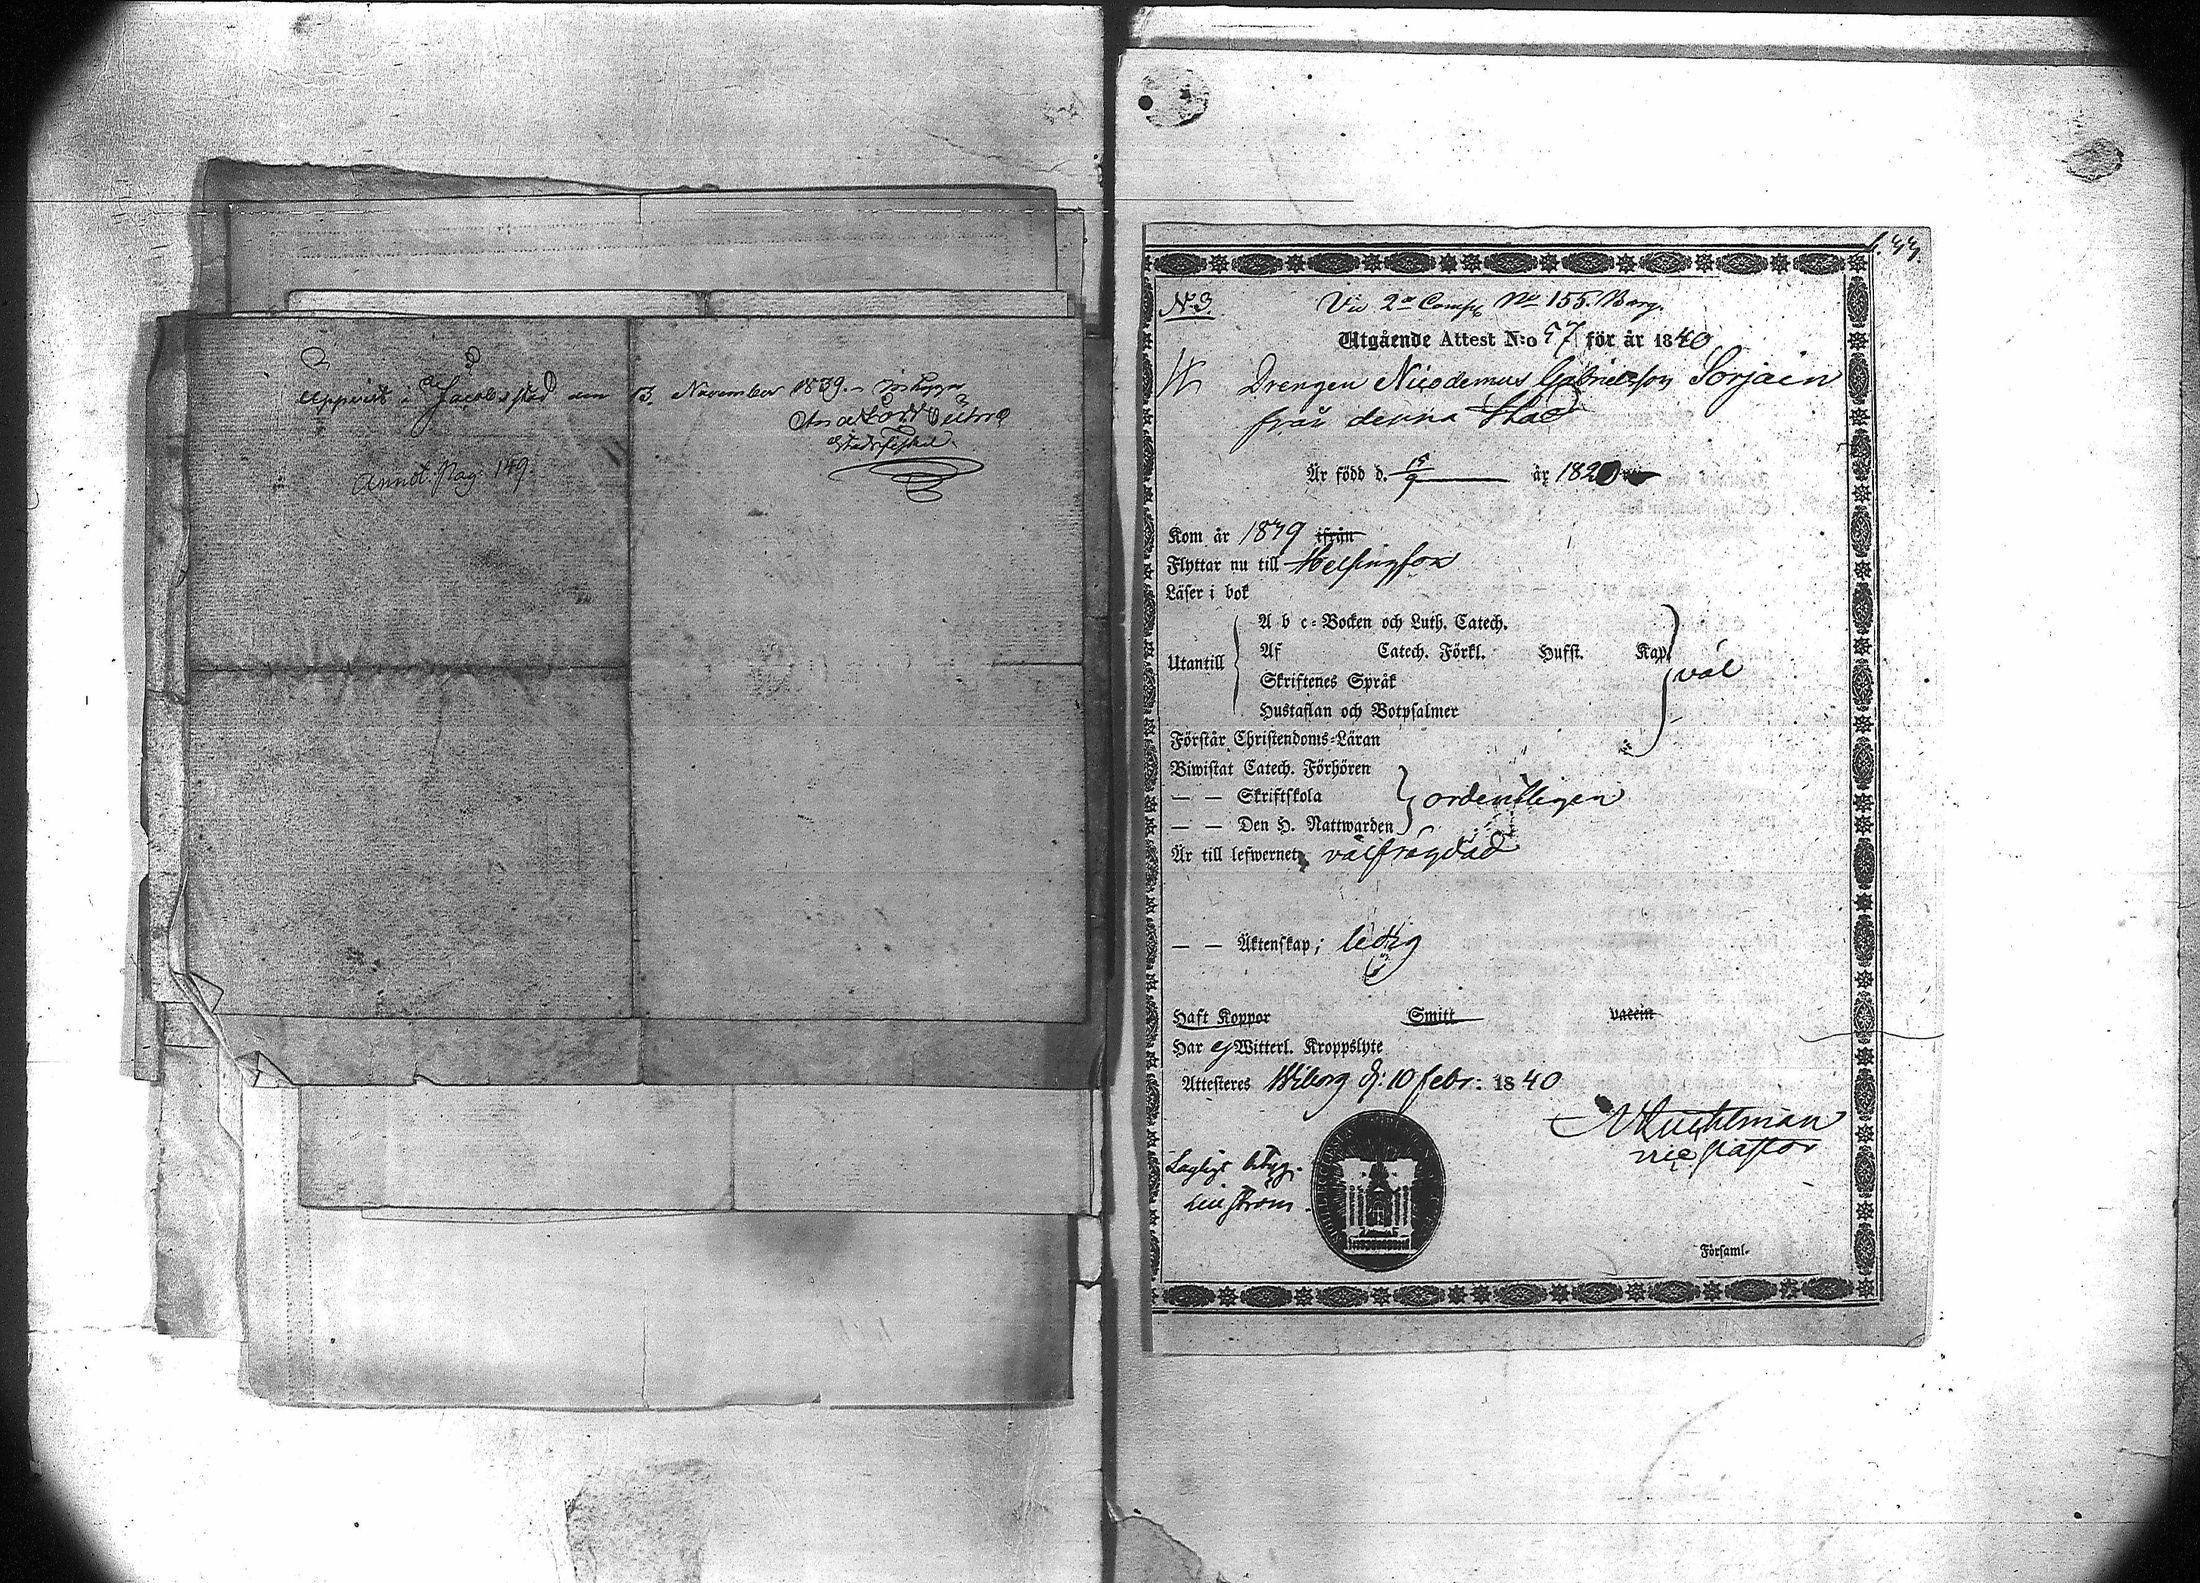 Uppvist i Jacobstad den 13. November 1839.
Stadsfiskal.
Annot. Pag. 149.
N.3.
Vid 2a Comp. No 155. Marg.
Utgående Attest N:o 57 för år 1840
Drengen Nicodemus Gabrielsson Sorjain
från denna Stad
Är född d. 15/9 år 1820
Kom år 1839 ifrån
Flyttar nu till Helsingfors
Läser i bok
A b c-Bocken och Luth. Catech.
Utantill Af Catech. Förkl. Husst. Kap. väl
Skriftenes Språk
Hustaflan och Botpsalmer
Förstår Christendoms-Läran
Biwistat Catech. Förhören
— — Skriftskola ordentligen
— — Den H. Nattwarden
Är till lefwernet, välfrägdad
— — Äktenskap; ledig
Haft Koppor Smitt vaccin
Har ej Witterl. Kroppslyte
Attesteres Wiborg d: 10 febr: 1840
vice pastor
Församl.